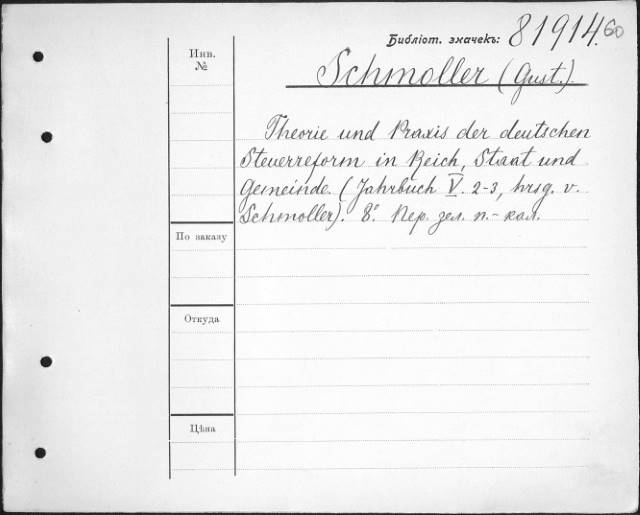 Библіот. значекъ: 81914.60
Инв. №
Schmoller (Gust.).
Theorie und Praxis der deutschen
Steuerreform in Reich, Staat und
Gemeinde. (Jahrbuch V. 2-3, hrsg. v.
Schmoller). 8°. Пер. зел. п.-кал.
По заказу
Откуда
Цѣна